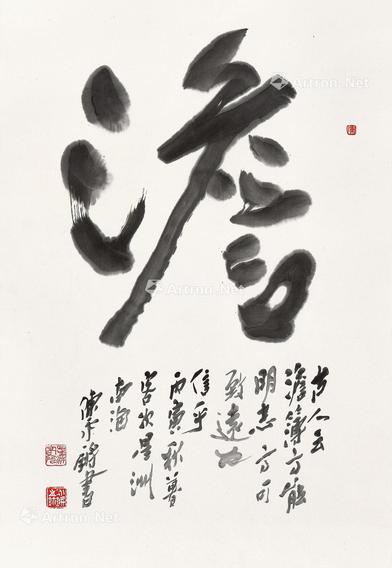 澹
古人云
澹薄方能
明志方可
致遠也
信乎
丙寅秋暮
客次星洲
南海
陳永鏘書
Artron.Net
Artron.Net
Artron.Net